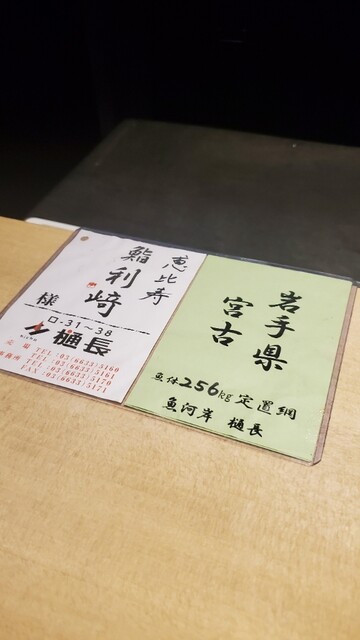 岩手県
宮古
魚体256kg 定置網
魚河岸 樋長
恵比寿
鮨利﨑
様
ロ-31~38
樋長
TEL (03(6633)5160
TEL (03(6633)5161
TEL (03(6633)5170
FAX (03(6633)5171